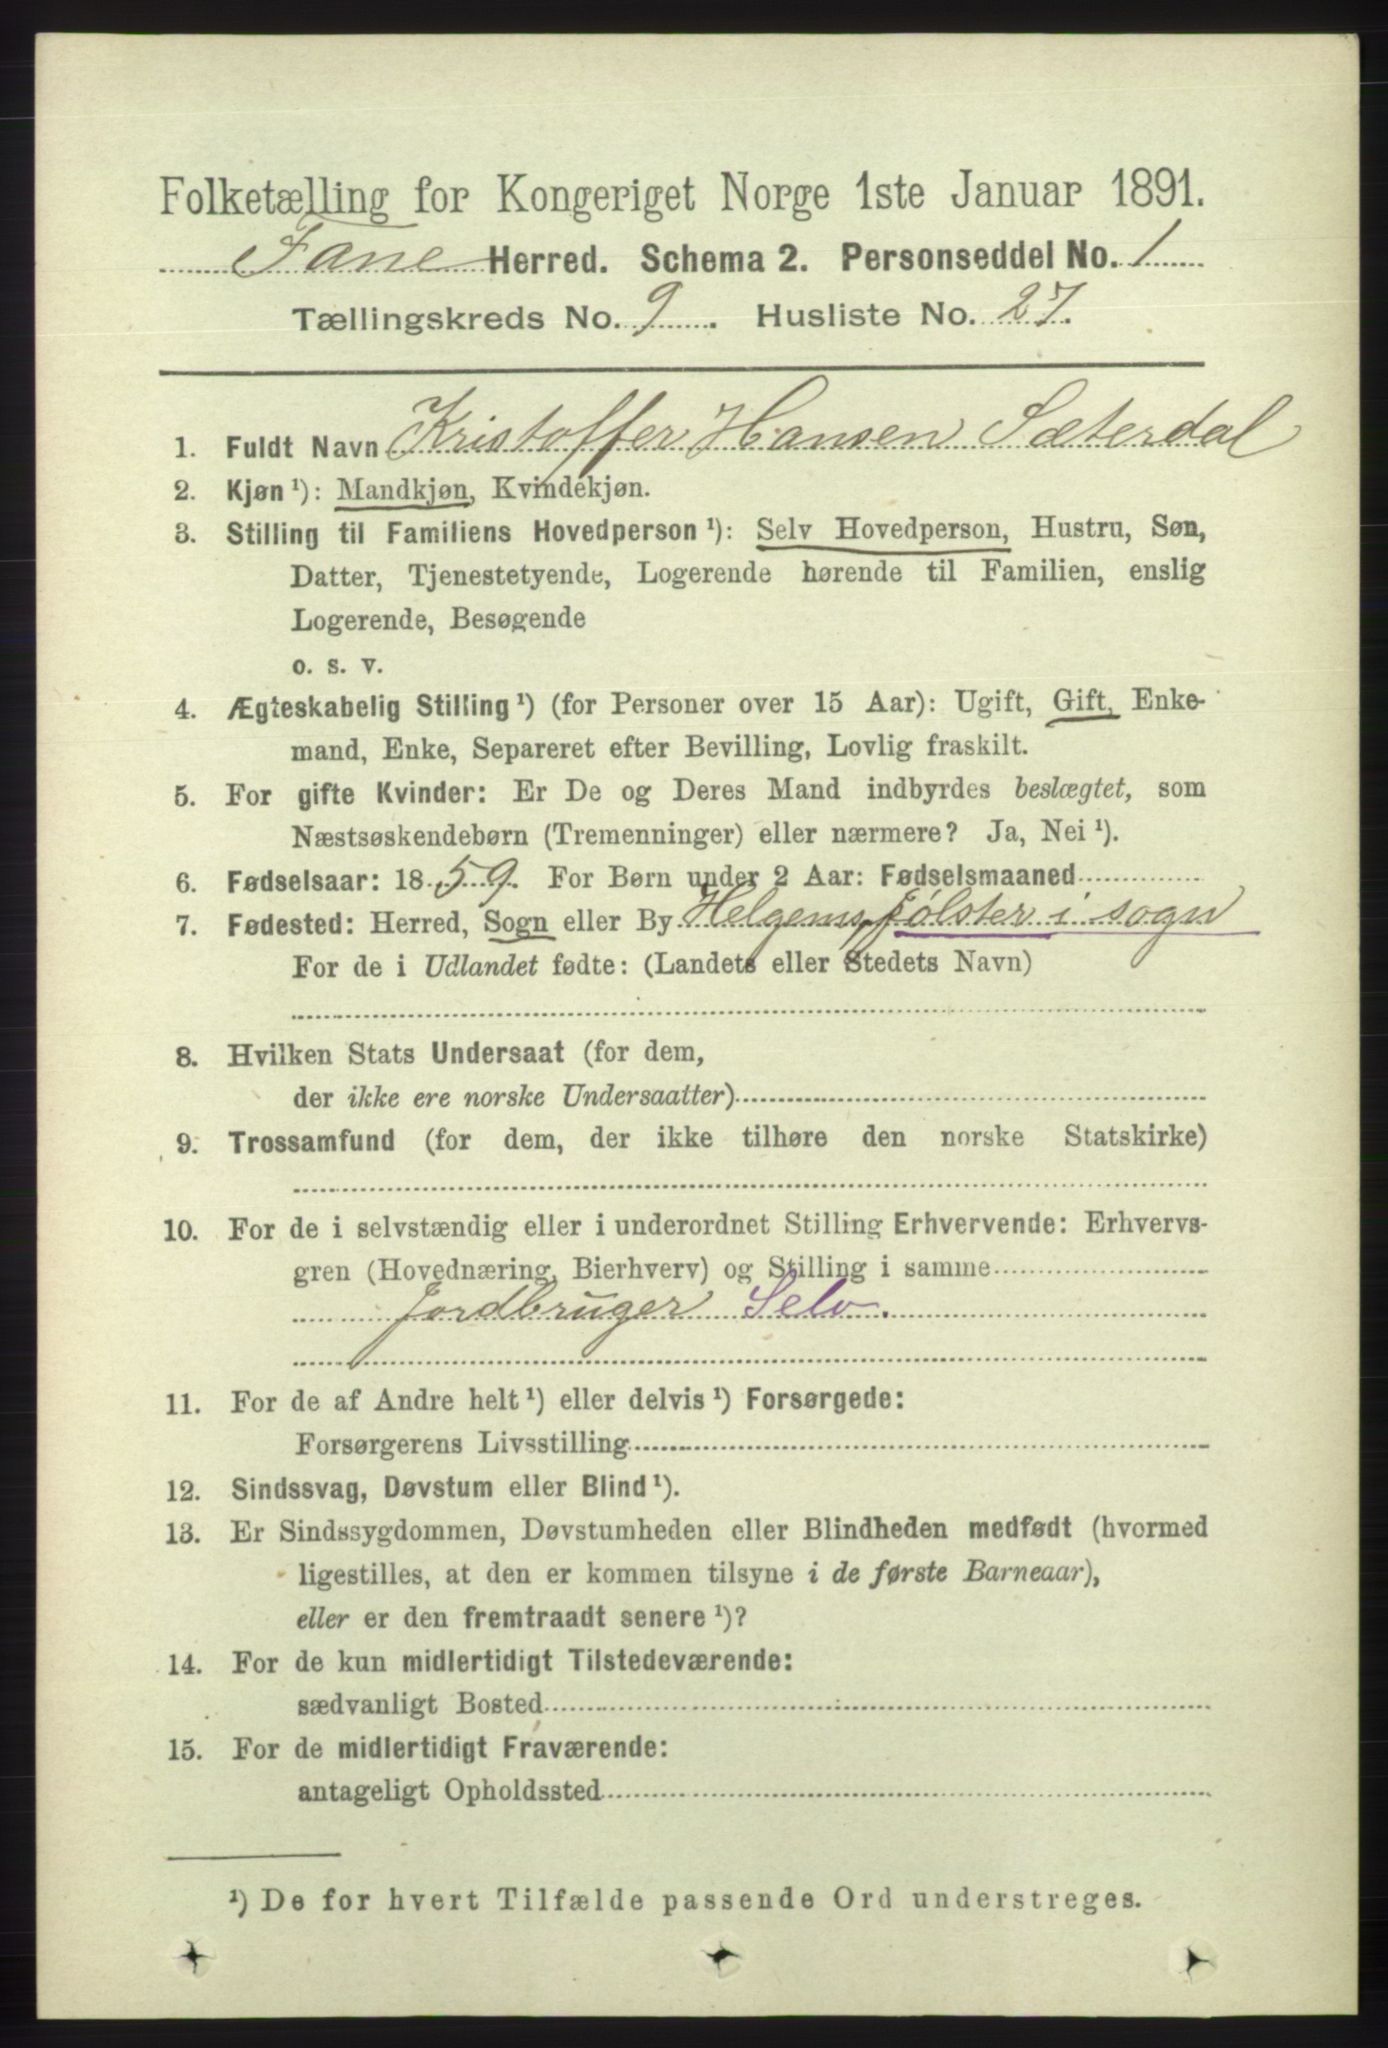 Folketælling for Kongeriget Norge 1ste Januar 1891.
Fane Herred. Schema 2. Personseddel No. 1
Tællingskreds No. 9. Husliste No. 27.
1. Fuldt Navn Kristoffer Hansen Sæterdal
2. Kjøn ¹): Mandkjøn, Kvindekjøn.
3. Stilling til Familiens Hovedperson ¹): Selv Hovedperson, Hustru, Søn,
Datter, Tjenestetyende, Logerende hørende til Familien, enslig
Logerende, Besøgende
o. s. v.
4. Ægteskabelig Stilling ¹) (for Personer over 15 Aar): Ugift, Gift, Enke-
mand, Enke, Separeret efter Bevilling, Lovlig fraskilt.
5. For gifte Kvinder: Er De og Deres Mand indbyrdes beslægtet, som
Næstsøskendebørn (Tremenninger) eller nærmere? Ja, Nei ¹).
6. Fødselsaar: 1859. For Børn under 2 Aar: Fødselsmaaned
7. Fødested: Herred, Sogn eller By Jølster i sogn
For de i Udlandet fødte: (Landets eller Stedets Navn)
8. Hvilken Stats Undersaat (for dem,
der ikke ere norske Undersaatter)
9. Trossamfund (for dem, der ikke tilhøre den norske Statskirke)
10. For de i selvstændig eller i underordnet Stilling Erhvervende: Erhvervs-
gren (Hovednæring, Bierhverv) og Stilling i samme
Jordbruger Selv.
11. For de af Andre helt ¹) eller delvis ¹) Forsørgede:
Forsørgerens Livsstilling
12. Sindssvag, Døvstum eller Blind ¹).
13. Er Sindssygdommen, Døvstumheden eller Blindheden medfødt (hvormed
ligestilles, at den er kommen tilsyne i de første Barneaar),
eller er den fremtraadt senere ¹)?
14. For de kun midlertidigt Tilstedeværende:
sædvanligt Bosted
15. For de midlertidigt Fraværende:
antageligt Opholdssted
¹) De for hvert Tilfælde passende Ord understreges.